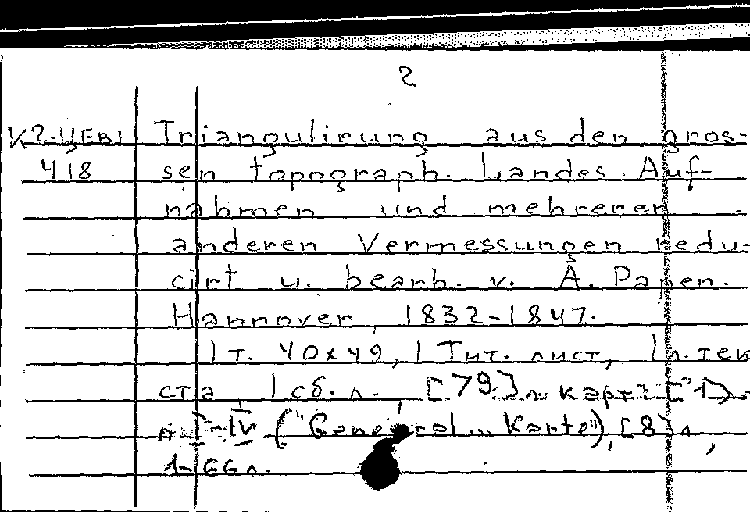 2
К2-Цевı Triangulirung aus den gros-
4 18 sen topograph. Landes Auf-
nahmen und mehreren
anderen Vermessungen redu-
cirt u. bearb. v. A. Papen.
Hannover, 1832-1847.
1 т. 40x49, 1 Тит. лист, 1 л. тек
ста, 1 сб. л., [79] л. карт: [1]
л. I-IV ("General... Karte), [8] л,
1-66 л.